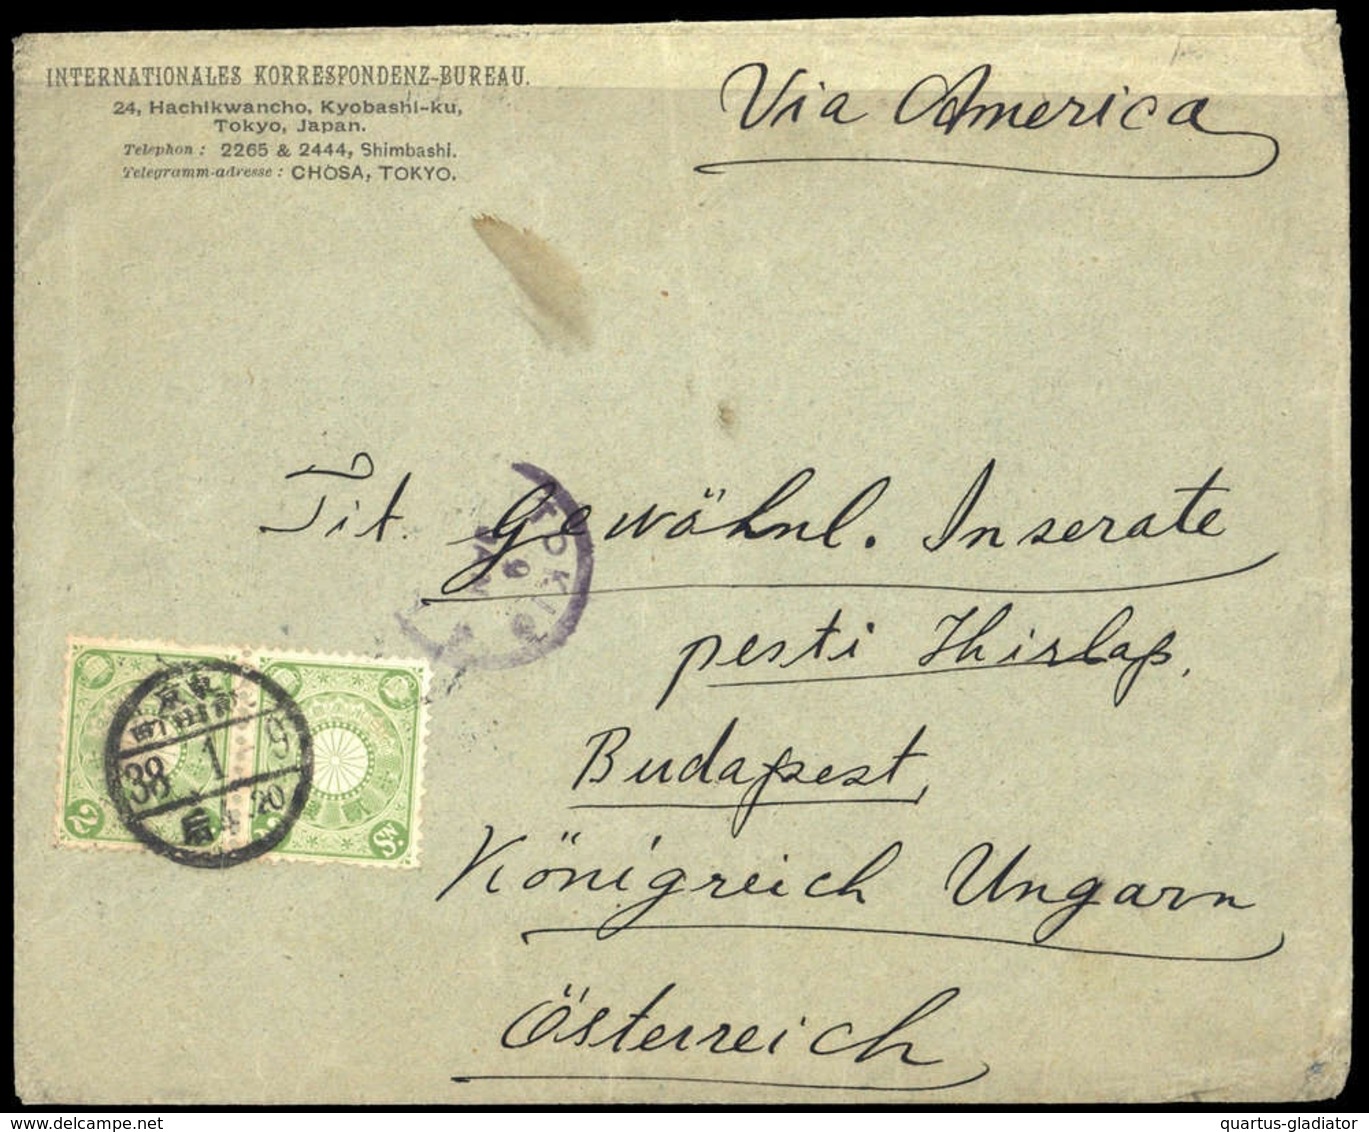 INTERNATIONALES KORRESPONDENZ-BUREAU.
24, Hachikwancho, Kyobashi-ku,
Tokyo, Japan.
Telephon : 2265 & 2444, Shimbashi.
Telegramm-adresse : CHOSA, TOKYO.
Via America
Tit. Gewöhnl. Inserate
pesti Hirlap,
Budapest,
Königreich Ungarn
Österreich
TOKIO
9
JAN
東京
38 1 9
后 4.20
2 Sn.
quartus-gladiator